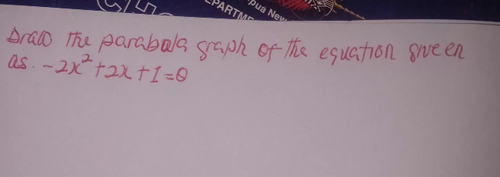 PARTME
pua New
Draw the parabola graph of the equation given
as. -2x² + 2x + 1 = 0